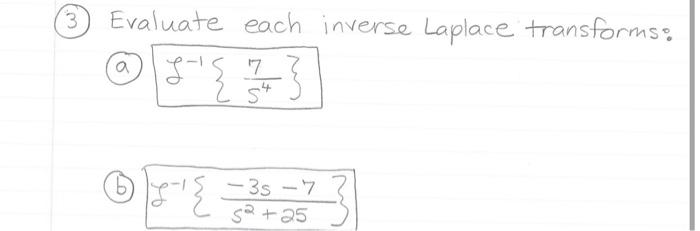 ③ Evaluate each inverse Laplace transforms:
ⓐ ℒ⁻¹{ 7/s⁴ }
ⓑ ℒ⁻¹{ (-3s - 7)/(s² + 25) }